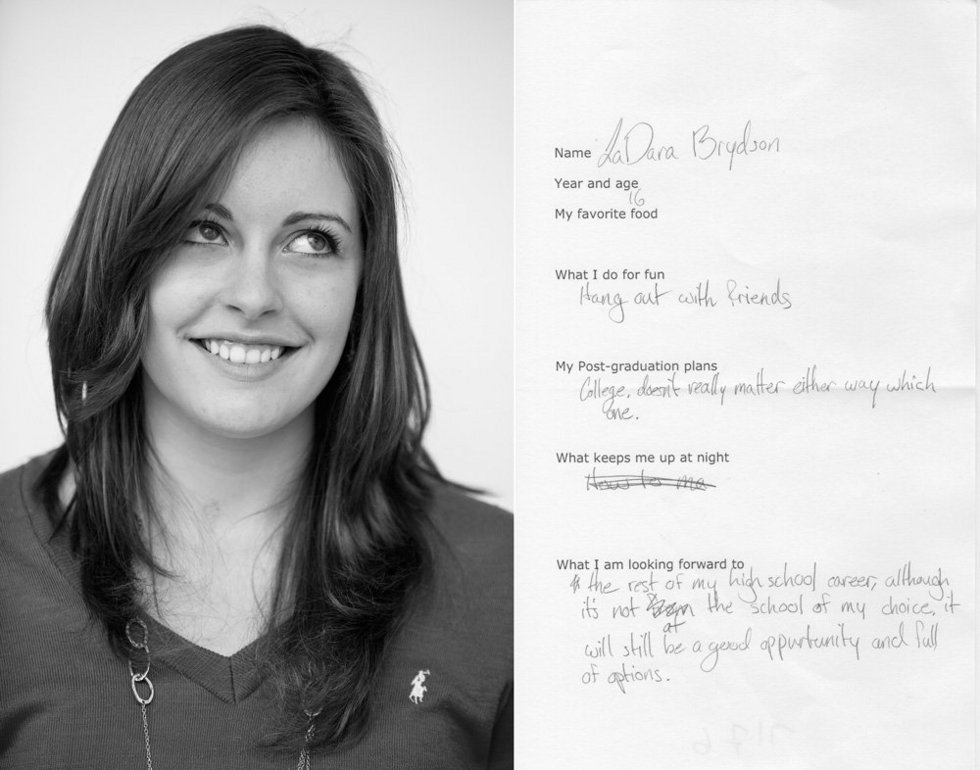 Name LaDara Brydson
Year and age
16
My favorite food
What I do for fun
Hang out with friends
My Post-graduation plans
College, doesn't really matter either way which
one.
What keeps me up at night
How to ma
What I am looking forward to
the rest of my high school career, although
it's not the school of my choice, it
at
will still be a good oppurtunity and full
of options.